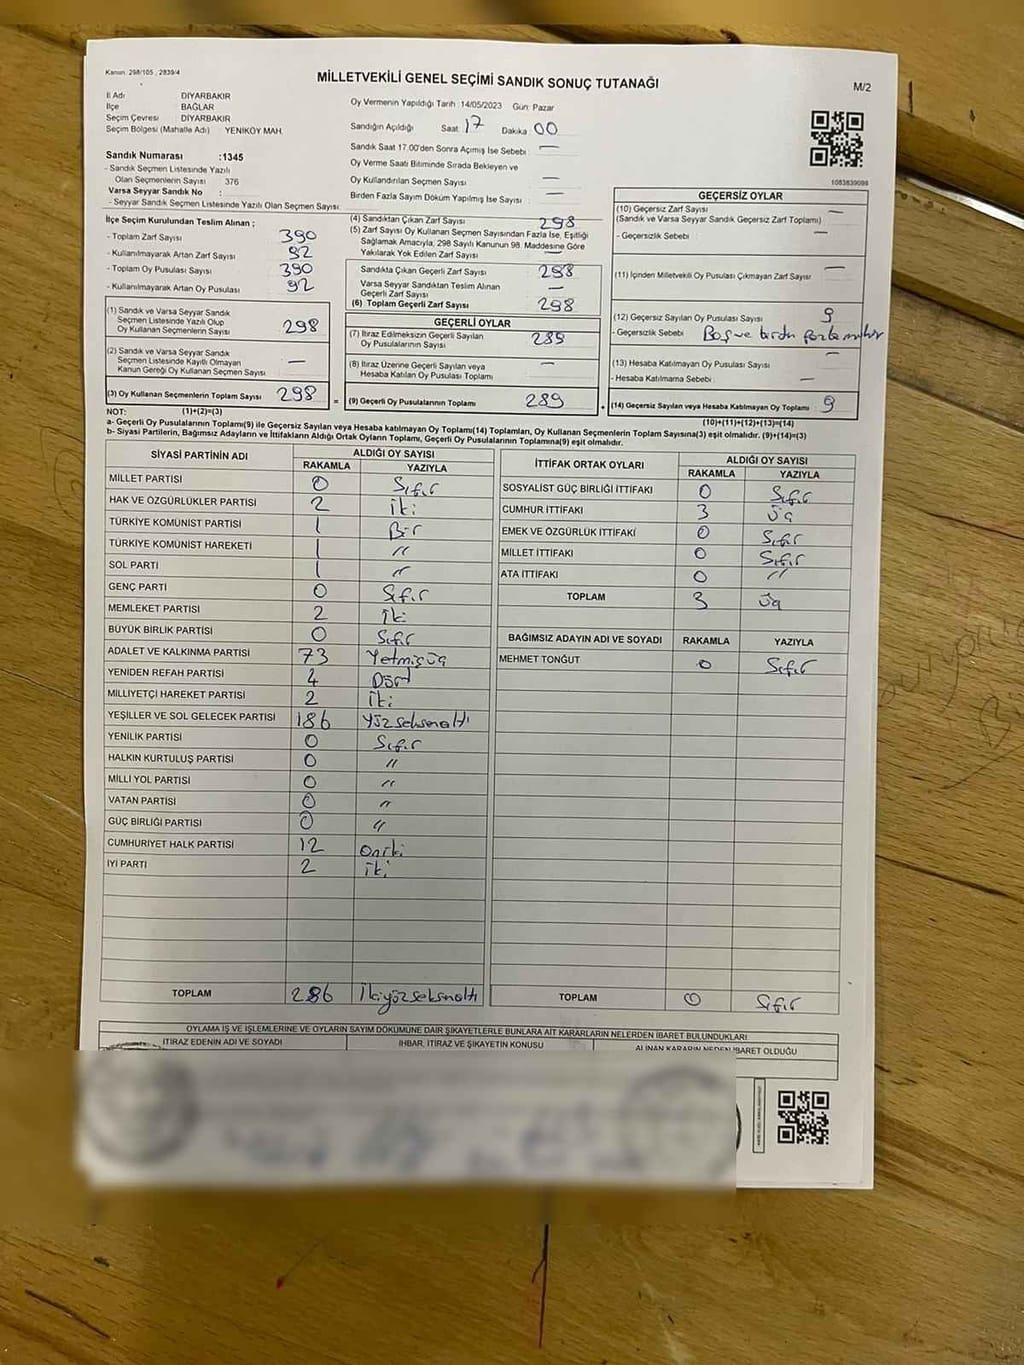 Kanun: 298/105 , 2839/4
MİLLETVEKİLİ GENEL SEÇİMİ SANDIK SONUÇ TUTANAĞI
M/2
İl Adı DİYARBAKIR
İlçe BAĞLAR
Seçim Çevresi DİYARBAKIR
Seçim Bölgesi (Mahalle Adı) YENİKÖY MAH.
Sandık Numarası :1345
- Sandık Seçmen Listesinde Yazılı
Olan Seçmenlerin Sayısı 376
Varsa Seyyar Sandık No :
- Seyyar Sandık Seçmen Listesinde Yazılı Olan Seçmen Sayısı
Oy Vermenin Yapıldığı Tarih :14/05/2023 Gün: Pazar
Sandığın Açıldığı Saat 17 Dakika 00
Sandık Saat 17.00'den Sonra Açılmış İse Sebebi —
Oy Verme Saati Bitiminde Sırada Bekleyen ve
Oy Kullandırılan Seçmen Sayısı —
Birden Fazla Sayım Döküm Yapılmış İse Sayısı —
1083839098
İlçe Seçim Kurulundan Teslim Alınan ;
- Toplam Zarf Sayısı 390
- Kullanılmayarak Artan Zarf Sayısı 92
- Toplam Oy Pusulası Sayısı 390
- Kullanılmayarak Artan Oy Pusulası 92
(1) Sandık ve Varsa Seyyar Sandık
Seçmen Listesinde Yazılı Olup
Oy Kullanan Seçmenlerin Sayısı 298
(2) Sandık ve Varsa Seyyar Sandık
Seçmen Listesinde Kayıtlı Olmayan
Kanun Gereği Oy Kullanan Seçmen Sayısı —
(3) Oy Kullanan Seçmenlerin Toplam Sayısı 298
(4) Sandıktan Çıkan Zarf Sayısı 298
(5) Zarf Sayısı Oy Kullanan Seçmen Sayısından Fazla İse, Eşitliği
Sağlamak Amacıyla, 298 Sayılı Kanunun 98. Maddesine Göre
Yakılarak Yok Edilen Zarf Sayısı —
Sandıkta Çıkan Geçerli Zarf Sayısı 298
Varsa Seyyar Sandıktan Teslim Alınan
Geçerli Zarf Sayısı —
(6) Toplam Geçerli Zarf Sayısı 298
GEÇERLİ OYLAR
(7) İtiraz Edilmeksizin Geçerli Sayılan
Oy Pusulalarının Sayısı 289
(8) İtiraz Üzerine Geçerli Sayılan veya
Hesaba Katılan Oy Pusulası Toplamı —
= (9) Geçerli Oy Pusulalarının Toplamı 289
GEÇERSİZ OYLAR
(10) Geçersiz Zarf Sayısı —
(Sandık ve Varsa Seyyar Sandık Geçersiz Zarf Toplamı)
- Geçersizlik Sebebi : —
(11) İçinden Milletvekili Oy Pusulası Çıkmayan Zarf Sayısı —
(12) Geçersiz Sayılan Oy Pusulası Sayısı 9
- Geçersizlik Sebebi : Boş ve birden fazla mühür
(13) Hesaba Katılmayan Oy Pusulası Sayısı —
- Hesaba Katılmama Sebebi : —
+ (14) Geçersiz Sayılan veya Hesaba Katılmayan Oy Toplamı 9
NOT: (1)+(2)=(3) (10)+(11)+(12)+(13)=(14)
a- Geçerli Oy Pusulalarının Toplamı(9) ile Geçersiz Sayılan veya Hesaba katılmayan Oy Toplamı(14) Toplamları, Oy Kullanan Seçmenlerin Toplam Sayısına(3) eşit olmalıdır. (9)+(14)=(3)
b- Siyasi Partilerin, Bağımsız Adayların ve İttifakların Aldığı Ortak Oyların Toplamı, Geçerli Oy Pusulalarının Toplamına(9) eşit olmalıdır.
SİYASİ PARTİNİN ADI ALDIĞI OY SAYISI
RAKAMLA YAZIYLA
MİLLET PARTİSİ 0 Sıfır
HAK VE ÖZGÜRLÜKLER PARTİSİ 2 İki
TÜRKİYE KOMÜNİST PARTİSİ 1 Bir
TÜRKİYE KOMÜNİST HAREKETİ 1 "
SOL PARTİ 1 "
GENÇ PARTİ 0 Sıfır
MEMLEKET PARTİSİ 2 İki
BÜYÜK BİRLİK PARTİSİ 0 Sıfır
ADALET VE KALKINMA PARTİSİ 73 Yetmişüç
YENİDEN REFAH PARTİSİ 4 Dört
MİLLİYETÇİ HAREKET PARTİSİ 2 İki
YEŞİLLER VE SOL GELECEK PARTİSİ 186 Yüzseksenaltı
YENİLİK PARTİSİ 0 Sıfır
HALKIN KURTULUŞ PARTİSİ 0 "
MİLLİ YOL PARTİSİ 0 "
VATAN PARTİSİ 0 "
GÜÇ BİRLİĞİ PARTİSİ 0 "
CUMHURİYET HALK PARTİSİ 12 Oniki
İYİ PARTİ 2 İki
TOPLAM 286 İkiyüzseksenaltı
İTTİFAK ORTAK OYLARI ALDIĞI OY SAYISI
RAKAMLA YAZIYLA
SOSYALİST GÜÇ BİRLİĞİ İTTİFAKI 0 Sıfır
CUMHUR İTTİFAKI 3 Üç
EMEK VE ÖZGÜRLÜK İTTİFAKI 0 Sıfır
MİLLET İTTİFAKI 0 Sıfır
ATA İTTİFAKI 0 "
TOPLAM 3 Üç
BAĞIMSIZ ADAYIN ADI VE SOYADI RAKAMLA YAZIYLA
MEHMET TONĞUT 0 Sıfır
TOPLAM 0 Sıfır
OYLAMA İŞ VE İŞLEMLERİNE VE OYLARIN SAYIM DÖKÜMÜNE DAİR ŞİKAYETLERLE BUNLARA AİT KARARLARIN NELERDEN İBARET BULUNDUKLARI
İTİRAZ EDENİN ADI VE SOYADI İHBAR, İTİRAZ VE ŞİKAYETİN KONUSU ALINAN KARARIN NEDEN İBARET OLDUĞU